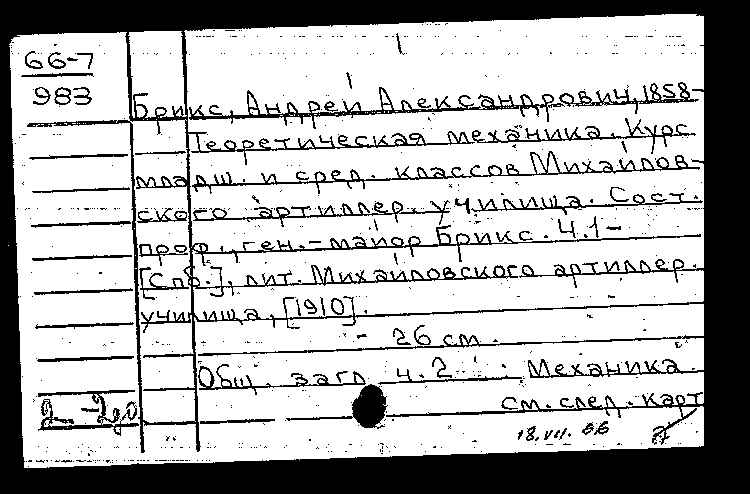 66-7
983
Брикс, Андрей Александрович, 1858-
Теоретическая механика. Курс
младш. и сред. классов Михайлов-
ского артиллер. училища. Сост.
проф., ген.-майор Брикс. Ч.1-
[Спб.], лит. Михайловского артиллер.
училища, [1910].
- 26 см.
Общ. загл. ч.2 : Механика.
см. след. карт
18.VII.66